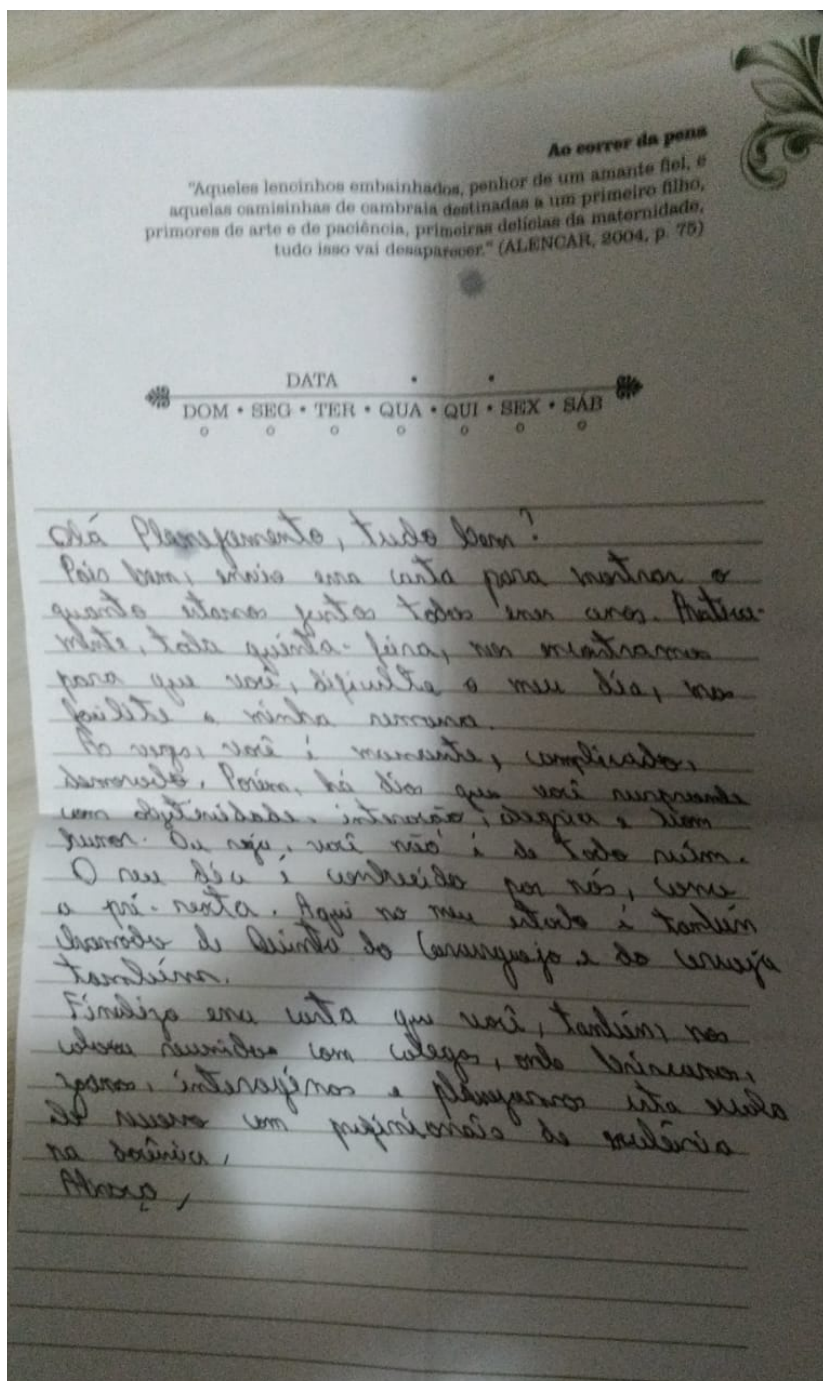 Ao correr da pena
"Aqueles lencinhos embainhados, penhor de um amante fiel, e
aquelas camisinhas de cambraia destinadas a um primeiro filho,
primores de arte e de paciência, primeiras delícias da maternidade,
tudo isso vai desaparecer." (ALENCAR, 2004, p. 75)
DATA • •
DOM • SEG • TER • QUA • QUI • SEX • SÁB
Olá Planejamento, tudo bem?
Pois bem, envio essa carta para mostrar o
quanto estamos juntos todos esses anos. Pratica-
mente, toda quinta-feira, nos encontramos
para que você, dificulta o meu dia, mas
facilite a minha semana.
As vezes, você é maçante, complicado,
demorado. Porém, há dias que você surpreende
com objetividade, interação, alegria e bom
humor. Ou seja, você não é de todo ruim.
O seu dia é conhecido por nós, como
a pré-sexta. Aqui no meu estado é também
chamado de Quinta do Caranguejo e da cerveja
também.
Finalizo essa carta que você, também, nos
coloca reunidos com colegas, onde brincamos,
interagimos e planejamos esta escola
de sucesso com profissionais de excelência
na docência,
Abraço,